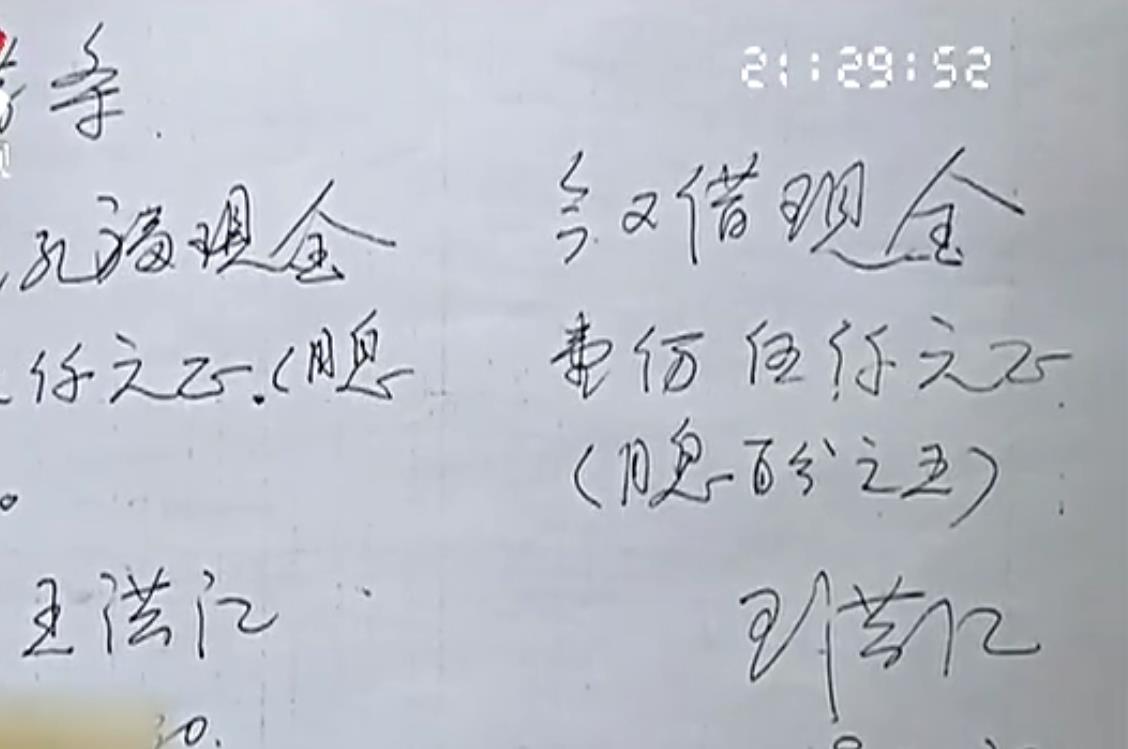 21:29:52
条
孔福现金
仟元正.(月息
王洪江
今又借现金
万伍仟元正
(月息百分之五)
王洪江